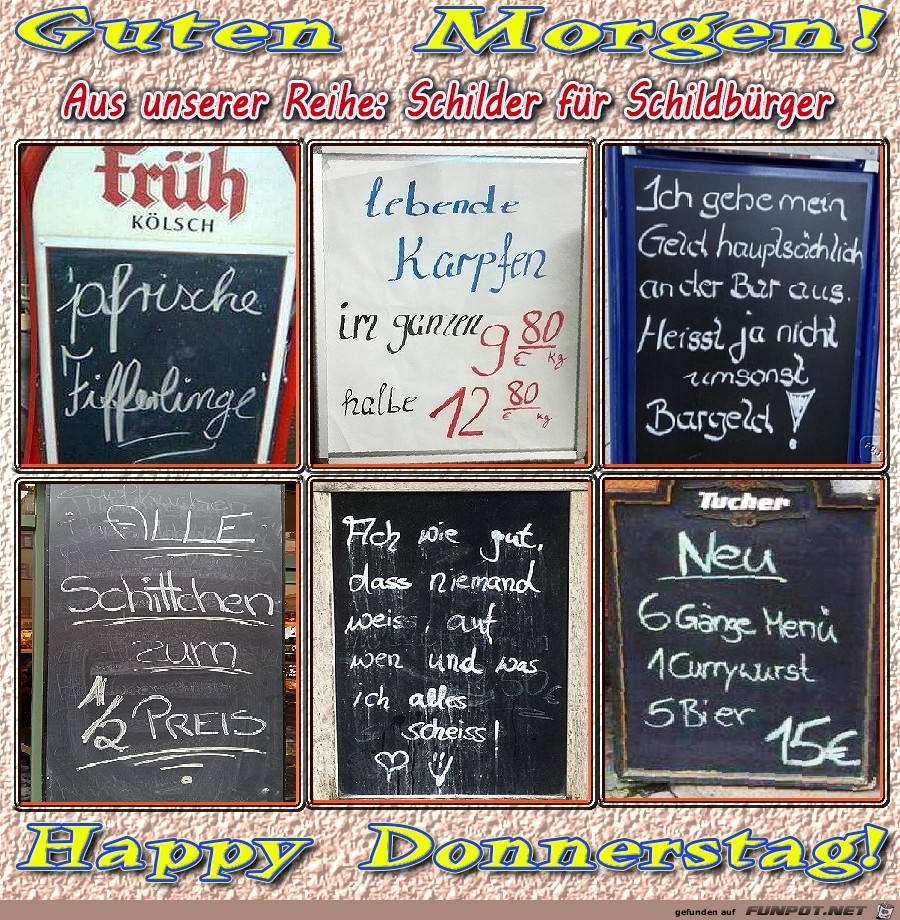 Guten Morgen!
Aus unserer Reihe: Schilder für Schildbürger
früh
KÖLSCH
'pfrische
Fifferlinge'
lebende
Karpfen
im ganzen 9 80 € kg
halbe 12 80 € kg
Ich gebe mein
Geld hauptsächlich
an der Bar aus.
Heisst ja nicht
umsonst
Bargeld!
ALLE
Schittchen
zum
1/2 PREIS
Ach wie gut,
dass niemand
weiss, auf
wen und was
ich alles
scheiss!
Tucher
Neu
6 Gänge Menü
1 Currywurst
5 Bier
15€
Happy Donnerstag!
gefunden auf FUNPOT.NET